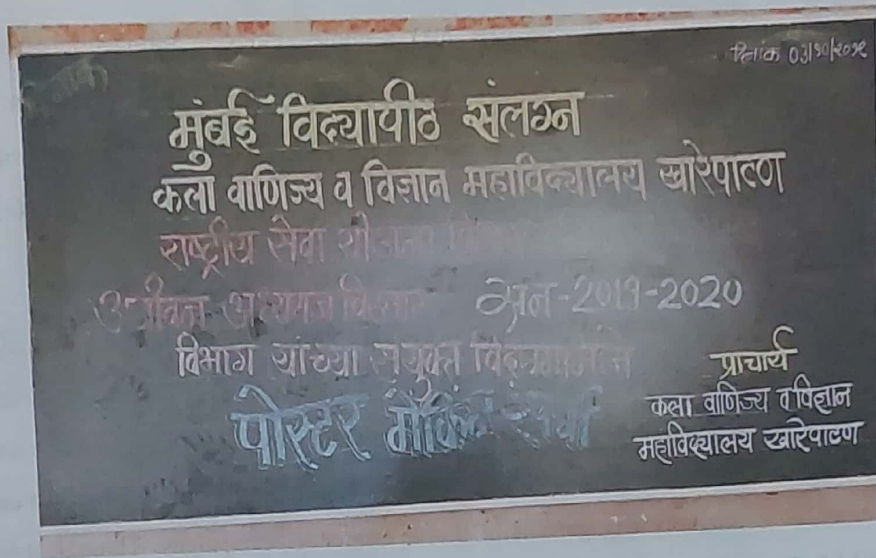 दिनांक 03/१०/२०१९
मुंबई विद्यापीठ संलग्न
कला वाणिज्य व विज्ञान महाविद्यालय खारेपाटण
राष्ट्रीय सेवा योजना
सन-2019-2020
विभाग यांच्या संयुक्त विद्यमानाने
पोस्टर मेकिंग स्पर्धा
प्राचार्य
कला वाणिज्य व विज्ञान
महाविद्यालय खारेपाटण